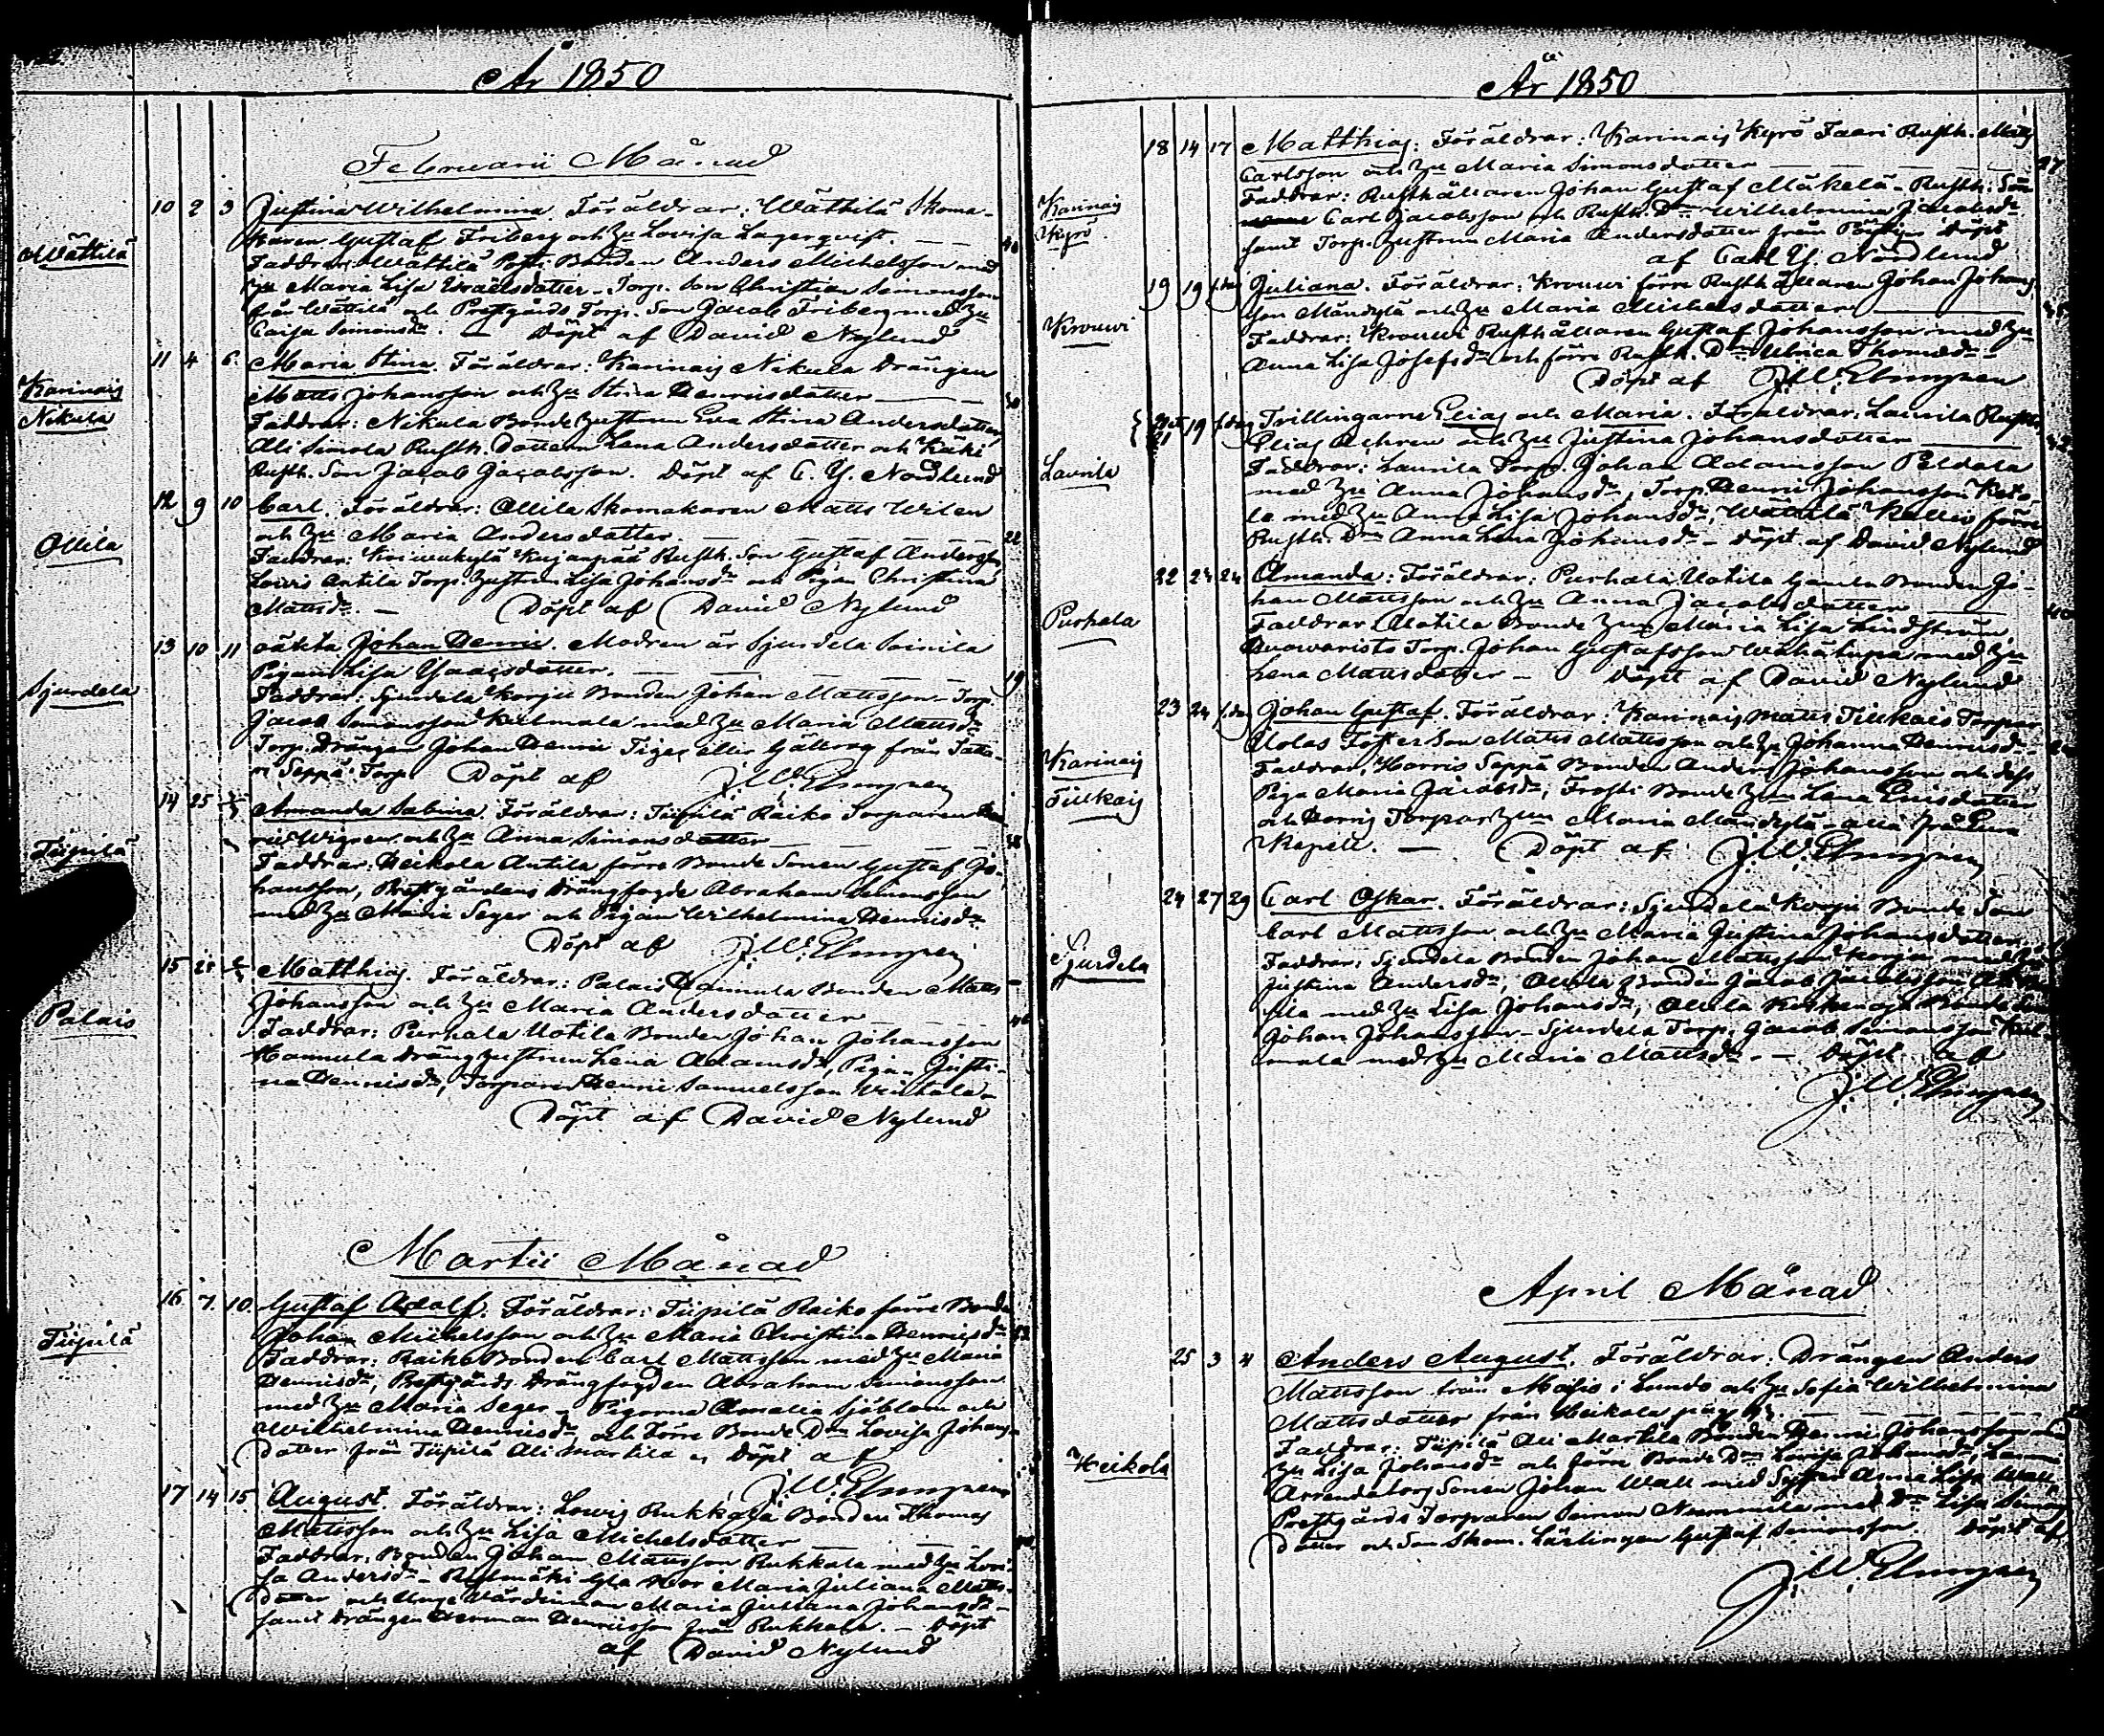 År 1850
Februarii Månad
Wättilä
10 2 3 Justina Wilhelmina. Föräldrar: Wättilä Skoma-
karen Gustaf Friberg och Hu Lovisa Lagerqvist.
Faddrar: Wättilä Bonden Anders Michelsson med
Hu Maria Lisa Israelsdotter - Torp. Son Christian Simonsson
från Wättilä och Prestgårds Torp. Son Jacob Friberg med Hu
Caisa Simonsdr. Döpt af David Nylund
Karinais
Nikula
11 4 6. Maria Stina. Föräldrar: Karinais Nikula Drängen
Matts Johansson och Hu Stina Henricsdotter
Faddrar: Nikula Bonde hustrun Eva Stina Andersdotter,
Ali Simola Rusth. Dottern Lena Andersdotter och Käki
Rusth. Son Jacob Jacobsson. Döpt af C. Y. Nordlund
Ollila
12 9 10 Carl. Föräldrar: Ollila Skomakaren Matts Wilen
och Hu Maria Andersdotter. 22
Faddrar: Kujanpää Rusth. Son Gustaf Andersson
Lowis Antila Torp. hustrun Lisa Johansdr och Pigan Christina
Mattsdr. Döpt af David Nylund
Sjurdela
13 10 11 oäkta Johan Henric. Modren är Sjurdela Soinila
Pigan Lisa Isaacsdotter. 19
Faddrar: Sjurdela Korju Bonden Johan Mattsson - Torp.
Jacob Simonsson Kulmala med Hu Maria Mattsdr
Torp. Drängen Johan Henric Tiger eller från
Seppä Torp. Döpt af J. W. Elmgren
Tiipilä
14 25 Amanda Sabina. Föräldrar: Tiipilä Raiko Torparen Hen-
ric Wigren och Hu Anna Simonsdotter
Faddrar: Heikola Antila förre Bonde Sonen Gustaf Jo-
hansson, Prestgårdens Drängfogde Abraham Simonsson
med Hu Maria Seger och Pigan Wilhelmina Henricsdr
Döpt af J. W. Elmgren
Palais
15 Matthias. Föräldrar: Palais Hannula Bonden Matts
Johansson och Hu Maria Andersdotter
Faddrar: Purhala Uotila Bonden Johan Johansson
Hannula Dräng hustrun Lena Adamsdr, Pigan Justi-
na Henricsdr, Torparen Henric Samuelsson
Döpt af David Nylund
Martii Månad
Tiipilä
16 7 10. Gustaf Adolf. Föräldrar: Tiipilä Raiko förre Bonden
Johan Michelsson och Hu Maria Christina Henricsdr
Faddrar: Raiko Bonden Carl Mattsson med Hu Maria
Henricsdr, Prestgårds Drängfogden Abraham Simonsson
med Hu Maria Seger - Pigorna Amalia Sjöblom och
Wilhelmina Henricsdr och Förre Bonde Dr Lovisa Johans-
dotter från Tiipilä Ali Martila. Döpt af
J. W. Elmgren
17 14 15 August. Föräldrar: Lowis Rukkala Bonden Thomas
Mattsson och Hu Lisa Michelsdotter
Faddrar: Bonden Johan Mattsson Rukkala med Hu Lovi-
sa Andersdr - Maria Juliana Matts-
dotter och Unga Värdinnan Maria Justina Johansdr
samt Drängen Herman Henricsson från Rukkala. - Döpt
af David Nylund
År 1850
Karinais
Kyrö
18 14 17 Matthias. Föräldrar: Karinais Kyrö Faari Rusth. Matts
Carlsson och Hu Maria Simonsdotter 27
Faddrar: Rusthållaren Johan Gustaf Mäkelä - Rusth. Son
Carl Jacobsson och Rusth. Dr Wilhelmina Jacobsdr
samt Torp. hustrun Maria Andersdotter från Döpt
af Carl Y. Nordlund
Krouwi
19 19 s. dag Juliana. Föräldrar: Krouwi förre Rusthållaren Johan Johans-
son Mändylä och Hu Maria Michelsdotter
Faddrar: Krouwi Rusthållaren Gustaf Johansson med Hu
Anna Lisa Josefsdr och förre Rusth. Dr Ulrica Thomædr
Döpt af J. W. Elmgren
Laurila
20 et 21 19 s. dag Tvillingarne Elias och Maria. Föräldrar: Laurila Rusth.
Elias Achren och Hu Justina Johansdotter
Faddrar: Laurila Torp. Johan Adamsson Peldola
med Hu Anna Johansdr, Torp. Henric Johansson Keto-
la med Hu Anna Lisa Johansdr, Wättilä förre
Rusth. Dr Anna Lena Johansdr - Döpt af David Nylund
Purhala
22 24 24 Amanda: Föräldrar: Purhala Uotila Gamla Bonden Jo-
han Mattsson och Hu Anna Jacobsdotter
Faddrar: Uotila Bonde Hu Maria Lisa Lindström,
Auowaristo Torp. Johan Gustafsson med Hu
Lena Mattsdotter - Döpt af David Nylund
Karinais
Tiukais
23 24 s. dag Johan Gustaf. Föräldrar: Karinais Matts Tiukais Torpar
Uolas Foster Son Matts Mattsson och Hu Johanna Henricsdr
Faddrar: Harris Seppä Bonden Anders Johansson och dess
Piga Maria Jacobsdr, Frosti Bonde Hu Lena
och Torpar Hu Maria Mändylä - alla från
Kapell. Döpt af J. W. Elmgren
Sjurdela
24 27 29 Carl Oskar. Föräldrar: Sjurdela Korju Bonde Son
Carl Mattsson och Hu Maria Justina Johansdotter
Faddrar: Sjurdela Bonden Johan Mattsson Korju med Hu
Justina Andersdr, Ollila Bonden Jacob Jacobsson
med Hu Lisa Johansdr, Ollila
Johan Johansson - Sjurdela Torp. Jacob Simonsson Kul-
mala med Hu Maria Mattsdr. - Döpt af
J. W. Elmgren
April Månad
Heikola
25 3 4 Anders August. Föräldrar: Drängen Anders
Mattsson från i Lundo och Hu Sofia Wilhelmina
Mattsdotter från Heikola
Faddrar: Tiipilä Ali Martila Bonden Henric Johansson med
Hu Lisa Johansdr och förre Bonde Dr Lovisa Johansdr,
Arrendators Sonen Johan Wall med Syster Anna Lisa Wall
Prestgårds Torparen Simon Nummila med Dr Lisa Simons-
dotter och Son Skom. Lärlingen Gustaf Simonsson. Döpt af
J. W. Elmgren